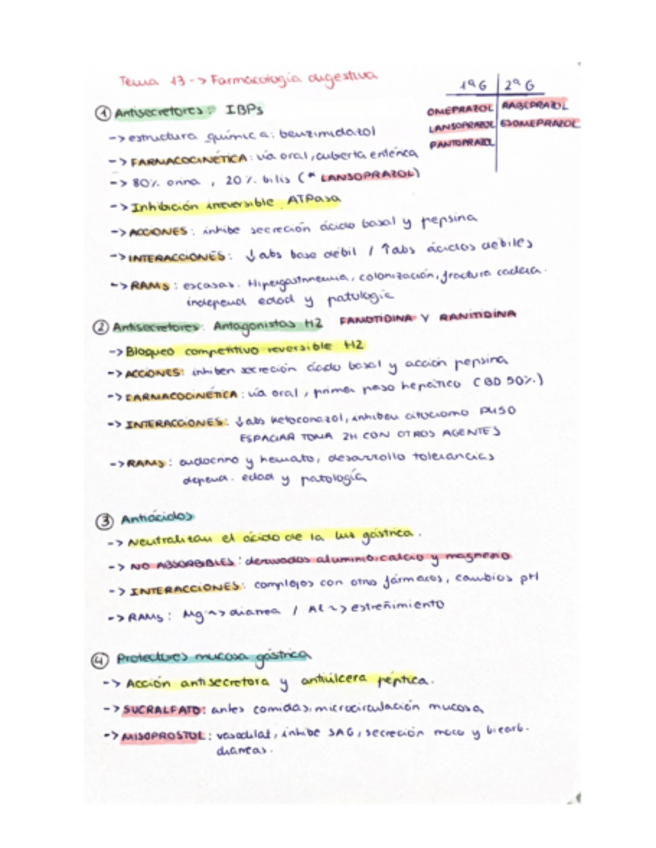 Tema 13 -> Farmacología digestiva
1ªG 2ªG
OMEPRAZOL RABEPRAZOL
LANSOPRAZOL ESOMEPRAZOL
PANTOPRAZOL
① Antisecretores: IBPs
-> estructura química: benzimidazol
-> FARMACOCINÉTICA: vía oral, cubierta entérica
-> 80% orina, 20% bilis (* LANSOPRAZOL)
-> Inhibición irreversible ATPasa
-> ACCIONES: inhibe secreción ácido basal y pepsina
-> INTERACCIONES: ↓abs base débil / ↑abs ácidos débiles
-> RAMs: escasas. Hipergastrinemia, colonización, fractura cadera.
independ edad y patología
② Antisecretores: Antagonistas H2 FAMOTIDINA Y RANITIDINA
-> Bloqueo competitivo reversible H2
-> ACCIONES: inhiben secreción ácido basal y acción pepsina
-> FARMACOCINÉTICA: vía oral, primer paso hepático (BD 50%)
-> INTERACCIONES: ↓abs ketoconazol, inhiben citocromo P450
ESPACIAR TOMA 2H CON OTROS AGENTES
-> RAMs: endocrino y hemato, desarrollo tolerancias
depend. edad y patología
③ Antiácidos
-> Neutralizan el ácido de la luz gástrica.
-> NO ABSORBIBLES: derivados aluminio, calcio y magnesio
-> INTERACCIONES: complejos con otro fármacos, cambios pH
-> RAMs: Mg ~> diarrea / Al ~> estreñimiento
④ Protectores mucosa gástrica
-> Acción antisecretora y antiúlcera péptica.
-> SUCRALFATO: antes comidas, microcirculación mucosa
-> MISOPROSTOL: vasodilat, inhibe SAG, secreción moco y bicarb.
diarreas.